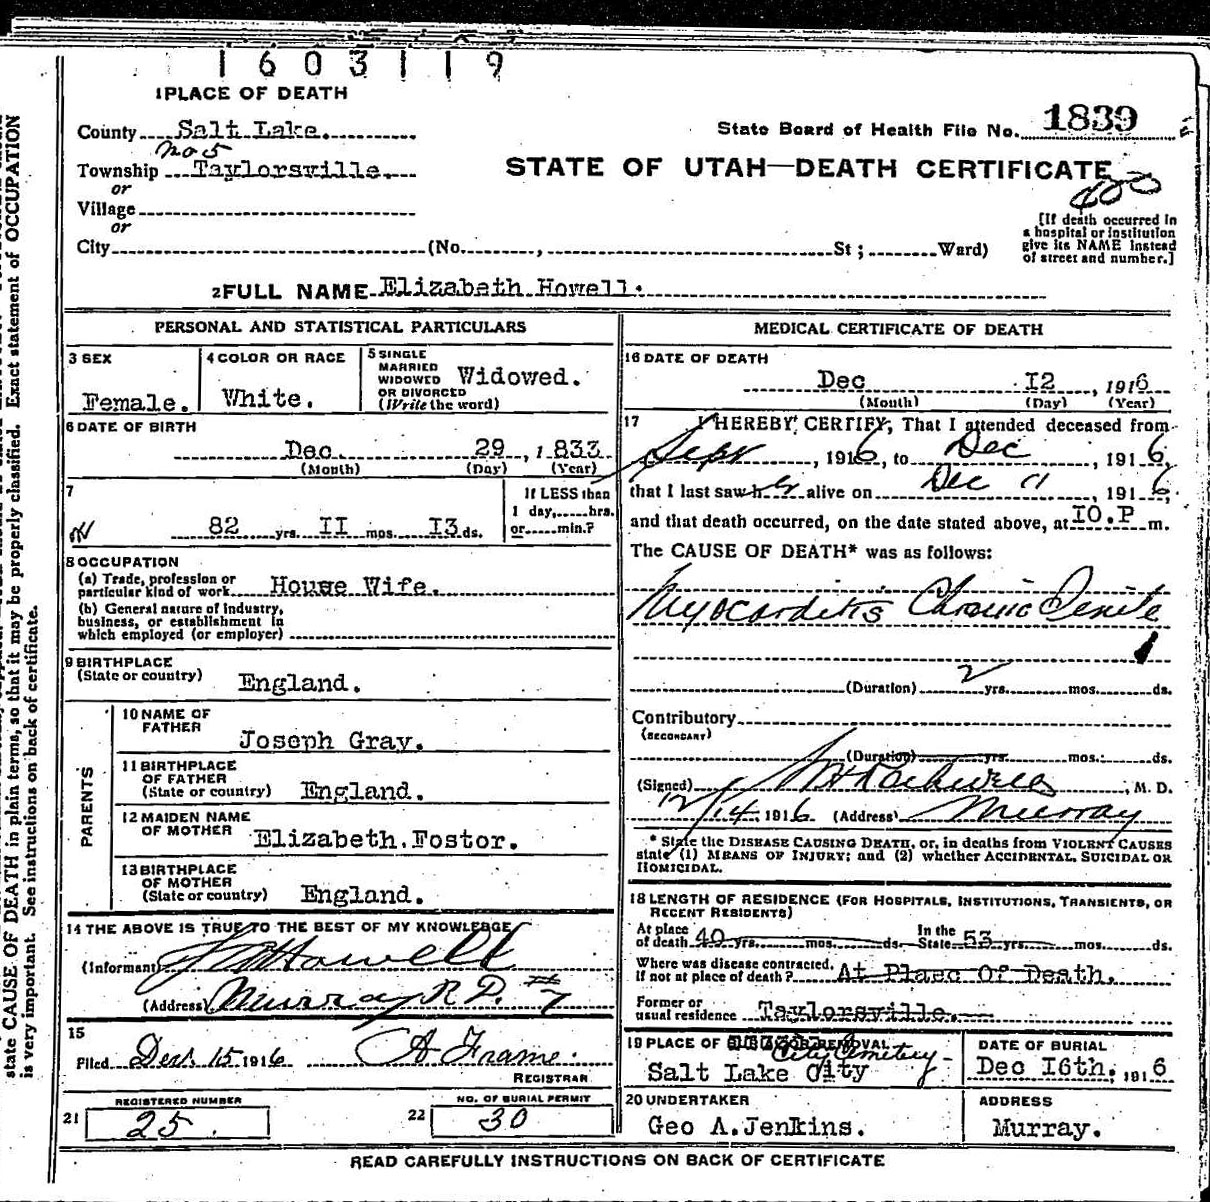 1603119
1 PLACE OF DEATH
County Salt Lake.
State Board of Health File No. 1839
No 5
Township Taylorsville.
STATE OF UTAH—DEATH CERTIFICATE
or
Village
or
[If death occurred in
a hospital or institution
give its NAME instead
of street and number.]
City (No. , St ; Ward)
2 FULL NAME Elizabeth Howell.
PERSONAL AND STATISTICAL PARTICULARS
3 SEX
Female.
4 COLOR OR RACE
White.
5 SINGLE
MARRIED
WIDOWED
OR DIVORCED
(Write the word)
Widowed.
6 DATE OF BIRTH
Dec 29, 1833
(Month) (Day) (Year)
7
82 yrs. II mos. I3 ds.
If LESS than
1 day, hrs.
or min.?
8 OCCUPATION
(a) Trade, profession or
particular kind of work House Wife.
(b) General nature of industry,
business, or establishment in
which employed (or employer)
9 BIRTHPLACE
(State or country) England.
PARENTS
10 NAME OF
FATHER
Joseph Gray.
11 BIRTHPLACE
OF FATHER
(State or country) England.
12 MAIDEN NAME
OF MOTHER
Elizabeth.Fostor.
13 BIRTHPLACE
OF MOTHER
(State or country) England.
14 THE ABOVE IS TRUE TO THE BEST OF MY KNOWLEDGE
(Informant) Howell
(Address) Murray R D. #7
15
Filed Dec 15 1916 A Frame.
REGISTRAR
REGISTERED NUMBER
21 25.
NO. OF BURIAL PERMIT
22 30
MEDICAL CERTIFICATE OF DEATH
16 DATE OF DEATH
Dec I2, 1916
(Month) (Day) (Year)
17 I HEREBY CERTIFY, That I attended deceased from
Sept, 1916, to Dec, 1916,
that I last saw her alive on Dec 11, 1916,
and that death occurred, on the date stated above, at I0.P m.
The CAUSE OF DEATH* was as follows:
Myocarditis Chronic Senile
(Duration) 2 yrs. mos. ds.
Contributory
(SECONDARY)
(Duration) yrs. mos. ds.
(Signed) Rockwell, M. D.
12/14, 1916 (Address) Murray
* State the DISEASE CAUSING DEATH, or, in deaths from VIOLENT CAUSES
state (1) MEANS OF INJURY; and (2) whether ACCIDENTAL, SUICIDAL OR
HOMICIDAL.
18 LENGTH OF RESIDENCE (FOR HOSPITALS, INSTITUTIONS, TRANSIENTS, OR
RECENT RESIDENTS)
At place
of death 40 yrs. mos. ds.
In the
State 53 yrs. mos. ds.
Where was disease contracted,
if not at place of death? At Plaec Of Death.
Former or
usual residence Taylorsville.
19 PLACE OF BURIAL OR REMOVAL
City Cemetery
Salt Lake City
DATE OF BURIAL
Dec I6th. 1916
20 UNDERTAKER
Geo A.Jenkins.
ADDRESS
Murray.
READ CAREFULLY INSTRUCTIONS ON BACK OF CERTIFICATE
state CAUSE OF DEATH in plain terms, so that it may be properly classified. Exact statement of OCCUPATION
is very important. See instructions on back of certificate.